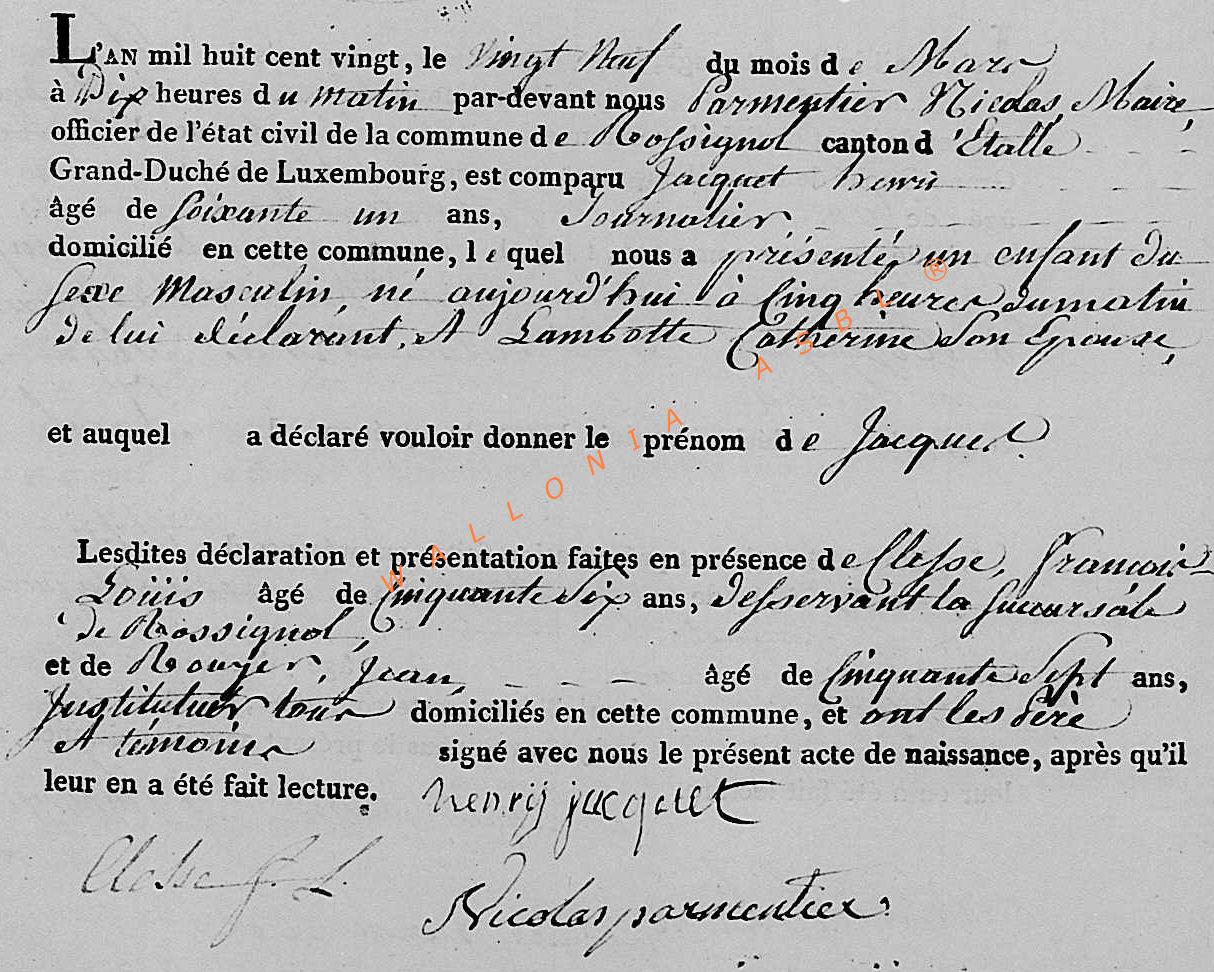 L'AN mil huit cent vingt, le vingt Neuf du mois de Mars
à Dix heures du matin par-devant nous Parmentier Nicolas, Maire,
officier de l'état civil de la commune de Rossignol canton d'Etalle
Grand-Duché de Luxembourg, est comparu Jacquet henri
âgé de soixante un ans, Journalier,
domicilié en cette commune, lequel nous a présenté un enfant du
sexe Masculin, né aujourd'hui à Cinq heures du matin
de lui déclarant, et Lambotte Catherine Son Epouse,
et auquel a déclaré vouloir donner le prénom de Jacques.
Lesdites déclaration et présentation faites en présence de Clesse, Francois
Louis âgé de Cinquante Six ans, Desservant la succursale
de Rossignol,
et de Rouyer, Jean, âgé de Cinquante Sept ans,
Instituteur, tous domiciliés en cette commune, et ont les Père
et témoins signé avec nous le présent acte de naissance, après qu'il
leur en a été fait lecture. henry jacquet
Clesse f. L.
Nicolas parmentier
WALLONIA ASBL ®